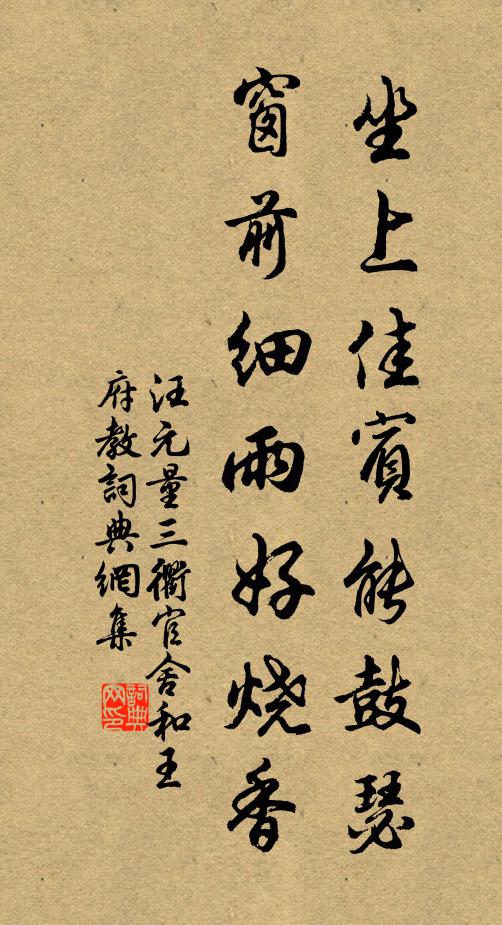 坐上佳賓能鼓瑟
窗前細雨好燒香
汪元量三衢官舍和王
府教詞典網集
詞典网印